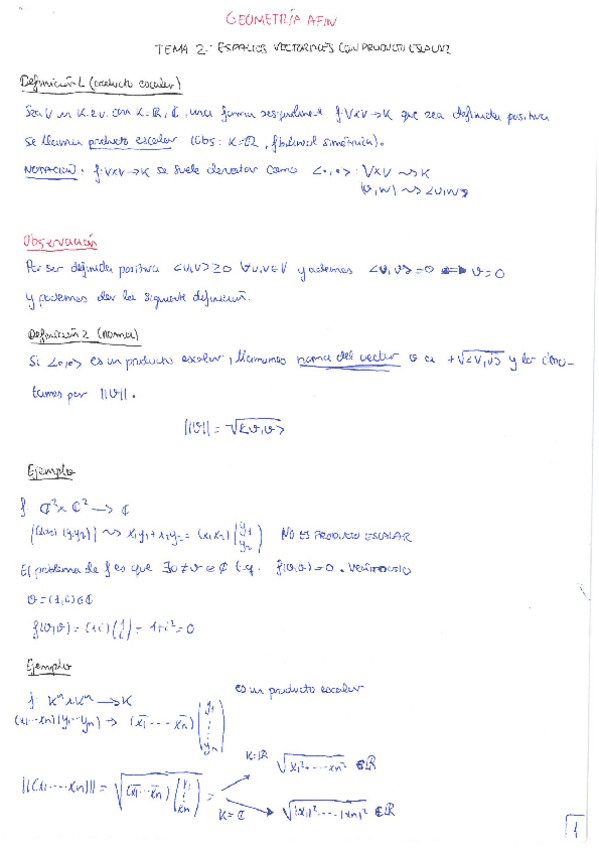 GEOMETRÍA AFÍN
TEMA 2: ESPACIOS VECTORIALES CON PRODUCTO ESCALAR
Definición 1 (producto escalar)
Sea V un K e.v. con K=ℝ, ℂ, una forma sesquilineal f: V×V→K que sea definida positiva
se llama producto escalar (Obs: K=ℝ, f bilineal simétrica).
NOTACIÓN. f: V×V→K se suele denotar como <·,·>: V×V ⇝ K
(v,w) ⇝ <v,w>
Observación
Por ser definida positiva <v,v> ≥ 0 ∀v,v∈V y además <v,v> = 0 ⟺ v = 0
y podemos dar la siguiente definición.
Definición 2 (norma)
Si <·,·> es un producto escalar, llamamos norma del vector v a +√<v,v> y lo deno-
tamos por ||v||.
||v|| = √<v,v>
Ejemplo
f: ℂ²×ℂ² → ℂ
⇝ x₁y₁ + x₂y₂ = (x₁x₂) (y₁ y₂) NO ES PRODUCTO ESCALAR
El problema de f es que ∃0≠v∈ℂ t.q. f(v,v) = 0.
v = (1,i) ∈ ℂ
f(v,v) = (1 i) (1 i) = 1+i² = 0
Ejemplo
f: Kⁿ×Kⁿ → K es un producto escalar
(x₁...xₙ)(y₁...yₙ) → (x̄₁ --- x̄ₙ) (y₁ ⋮ yₙ)
K=ℝ √x₁²+...xₙ² ∈ℝ
||(x₁...xₙ)|| = √(x̄₁...x̄ₙ)(x₁ ⋮ xₙ) =
K=ℂ √|x₁|²+...|xₙ|² ∈ℝ
1